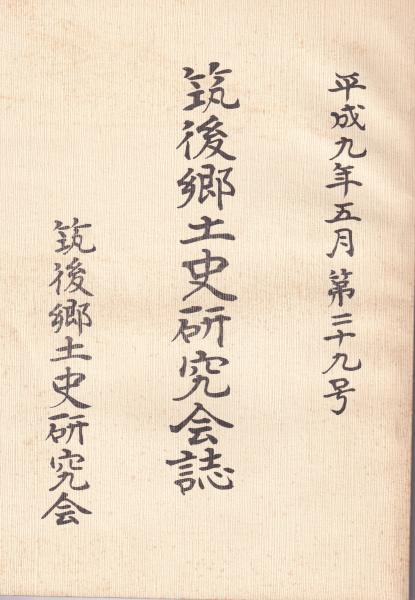 平成九年五月 第三十九号
筑後郷土史研究会誌
筑後郷土史研究会